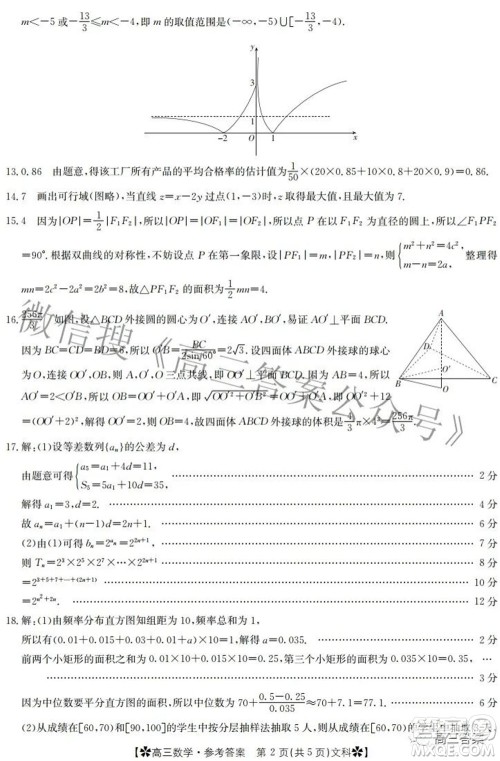 m<-5或-13/3≤m<-4,即 m 的取值范围是(-∞,-5)∪[-13/3,-4).
y
3
1
-2
O
1
x
13.0.86 由题意,得该工厂所有产品的平均合格率的估计值为1/50×(20×0.85+10×0.8+20×0.9)=0.86.
14.7 画出可行域(图略),当直线 z=x-2y 过点(1,-3)时,z 取得最大值,且最大值为 7.
15.4 因为|OP|=1/2|F₁F₂|,所以|OP|=|OF₁|=|OF₂|,所以点 P 在以 F₁F₂ 为直径的圆上,所以∠F₁PF₂
=90°.根据双曲线的对称性,不妨设点 P 在第一象限,设|PF₁|=m,|PF₂|=n,则{m²+n²=4c², m-n=2a, 整理得
mn=2c²-2a²=2b²=8,故△PF₁F₂ 的面积为1/2mn=4.
16.256π/3 如图,设△BCD 外接圆的圆心为 O′,连接 AO′,BO′,易证 AO′⊥平面 BCD.
因为 BC=CD=BD=6,所以 O′B=BC/2sin60°=2√3.设四面体 ABCD 外接球的球心
为 O,连接 OO′,OB,则 A,O′,O 三点共线,即 OO′⊥平面 BCD,所以 OO′⊥O′B.因为
AO′=2<O′B,所以 OB=OO′+AO′,即 √OO′²+O′B²=OO′+AO′,即 OO′²+12
=(OO′+2)²,解得 OO′=2,则 OB=4,故四面体 ABCD 外接球的体积是4/3π×4³=256π/3.
A
D
O′
B
C
O
17.解:(1)设等差数列{aₙ}的公差为 d,
由题意可得{a₅=a₁+4d=11, S₅=5a₁+10d=35, 2 分
解得 a₁=3,d=2. 4 分
故 aₙ=a₁+(n-1)d=2n+1. 6 分
(2)由(1)可得 bₙ=2^{aₙ}=2^{2n+1}, 7 分
则 Tₙ=2³×2⁵×2⁷×…×2^{2n+1} 8 分
=2^{3+5+7+…+(2n+1)} 10 分
=2^{n²+2n}. 12 分
18.解:(1)由频率分布直方图知组距为 10,频率总和为 1,
所以有(0.01+0.015+0.03+a+0.01)×10=1,解得 a=0.035. 2 分
前两个小矩形的面积之和为 0.01×10+0.015×10=0.25,第三个小矩形的面积为 0.035×10=0.35,
3 分
因为中位数要平分直方图的面积,所以中位数为 70+(0.5-0.25)/0.035≈70+7.1=77.1. 6 分
(2)从成绩在[60,70)和[90,100]的学生中按分层抽样法抽取 5 人,则从成绩在[60,70)的
【高三数学·参考答案 第 2 页(共 5 页)文科】
微信搜《高三答案公众号》
高三答案